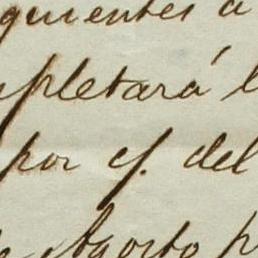 guientes a
pletará l
por cf. del
Agosto p